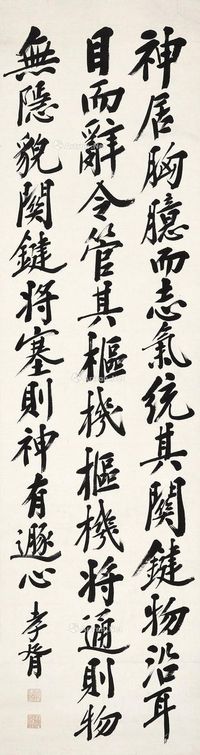 神居胸臆而志氣統其関鍵物沿耳
目而辭令管其樞機樞機将通則物
無隱貌関鍵将塞則神有遯心 孝胥